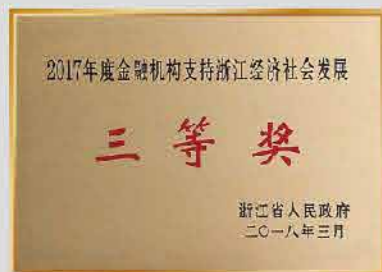 2017年度金融机构支持浙江经济社会发展
三等奖
浙江省人民政府
二〇一八年三月